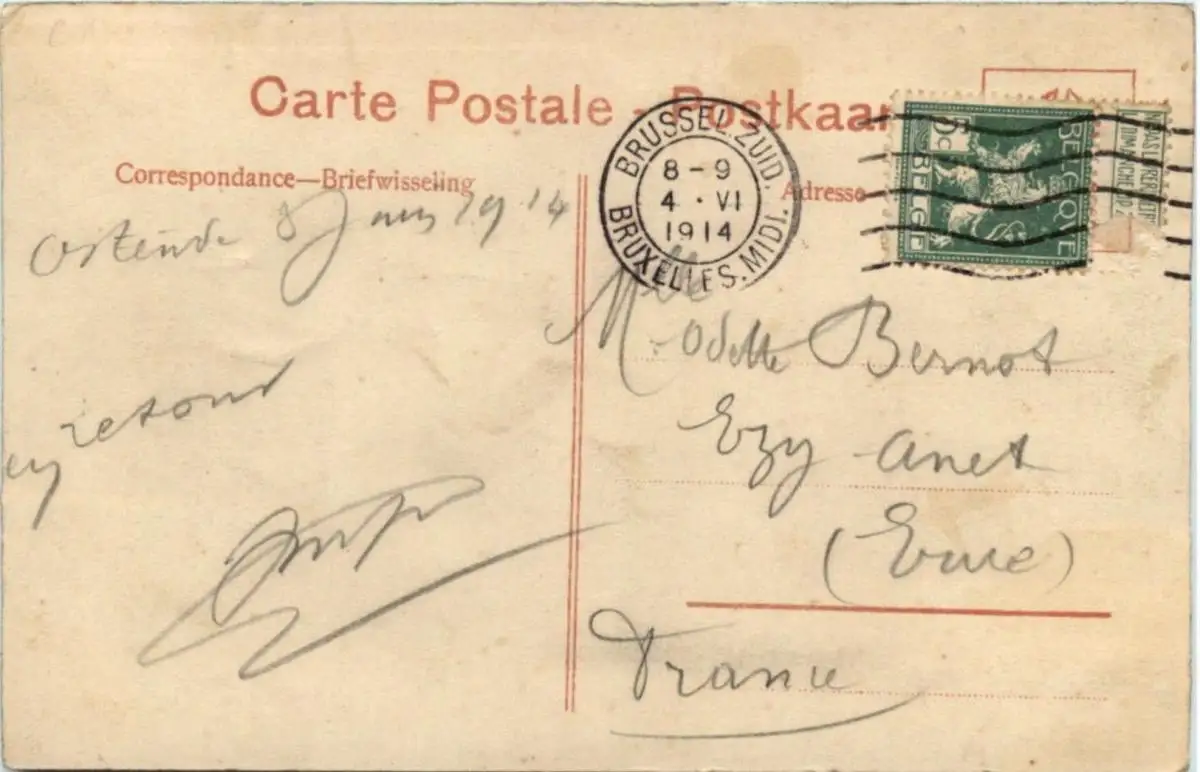 Carte Postale - Postkaar
Correspondance—Briefwisseling
Adresse
BRUSSEL.ZUID.
8-9
4 · VI
1914
BRUXELLES.MIDI.
BELGIQUE
BELGIË
5c
Ostende 8 1914
retour
Mlle
Odette Bernot
Ezy Anet
(Eure)
France